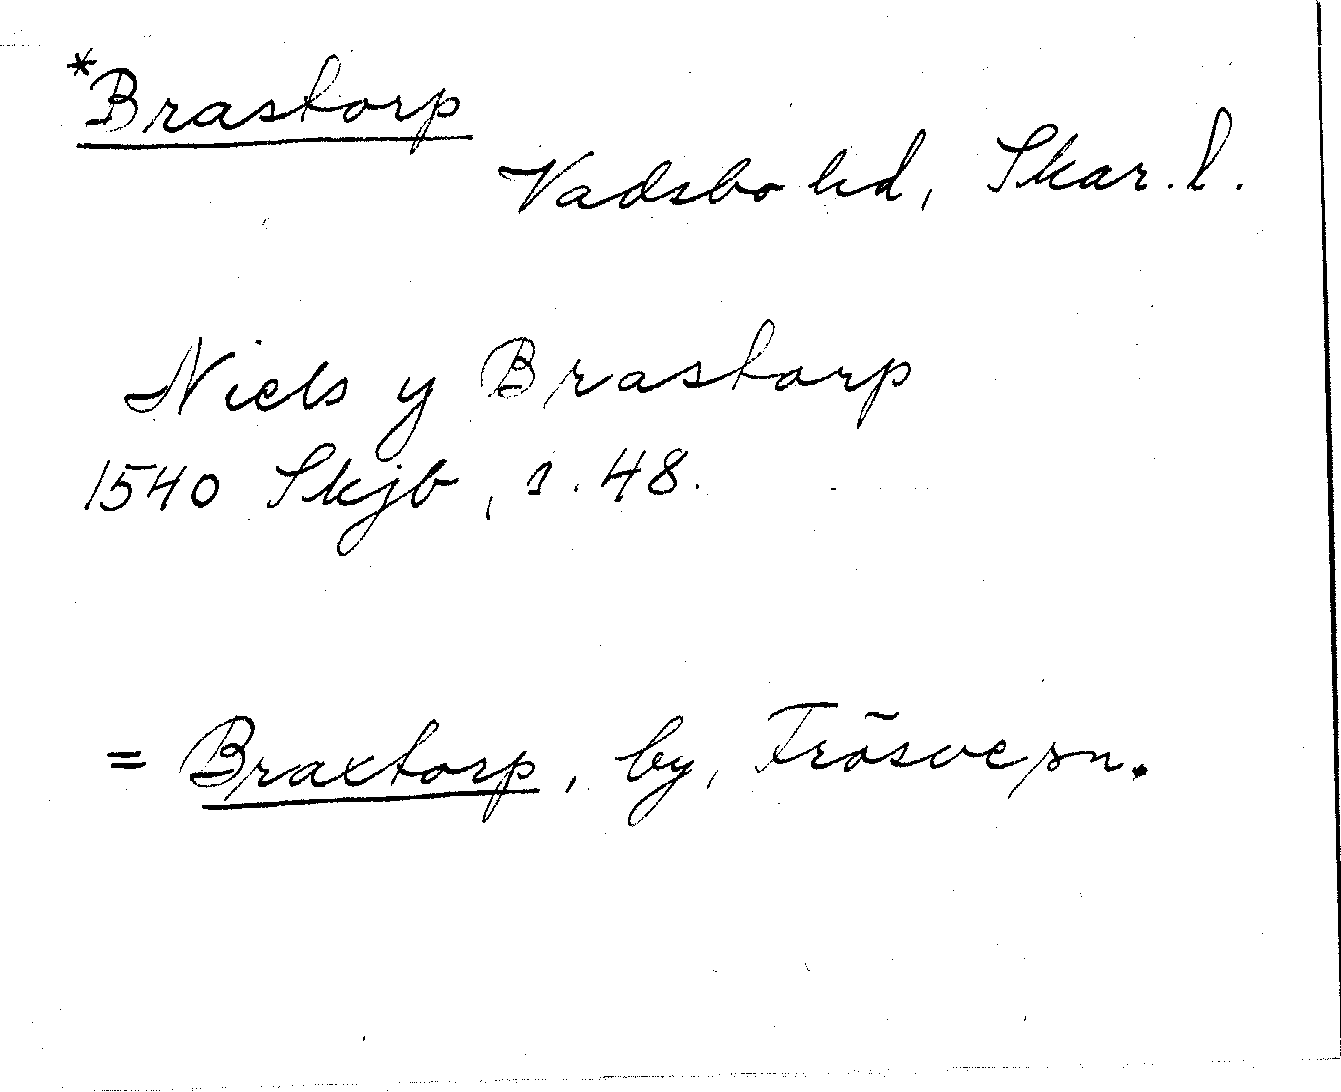 *Brastorp
Vadsbo hd, Skar. l.
Niels y Brastorp
1540 Skjb, s. 48.
= Braxtorp, by, Frösve sn.